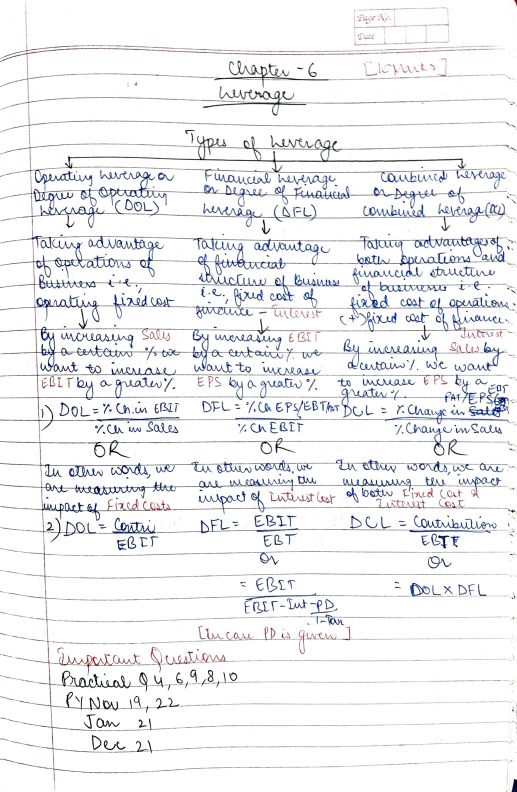 Page No.
Date
Chapter - 6 [10 Marks]
Leverage
Types of Leverage
Operating Leverage or
Degree of Operating
Leverage (DOL)
Taking advantage
of operations of
Business i.e.,
operating fixed cost
By increasing Sales
by a certain % we
want to increase
EBIT by a greater %.
1) DOL = % Ch. in EBIT
% Ch in Sales
OR
In other words, we
are measuring the
impact of Fixed costs
2) DOL = Contri
EBIT
Financial Leverage
or Degree of Financial
Leverage (DFL)
Taking advantage
of financial
structure of Business
i.e., fixed cost of
finance - Interest
By increasing EBIT
by a certain % we
want to increase
EPS by a greater %.
DFL = % Ch EPS/EBT/PAT
% Ch EBIT
OR
In other words, we
are measuring the
impact of Interest Cost
DFL = EBIT
EBT
Or
= EBIT
EBIT - Int - PD
1-Tax
[In case PD is given]
Combined Leverage
or Degree of
combined Leverage (DCL)
Taking advantage of
both operations and
financial structure
of business i.e.
fixed cost of operations
(+) fixed cost of finance
Interest
By increasing Sales by
a certain %. we want
to increase EPS by a
greater %.
EBT
PAT/EPS
DCL = % Change in
% Change in Sales
OR
In other words, we are
measuring the impact
of both Fixed Cost &
Interest Cost
DCL = Contribution
EBT
Or
= DOL X DFL
Important Questions
Practical Q 4, 6, 9, 8, 10
PY Nov 19, 22
Jan 21
Dec 21